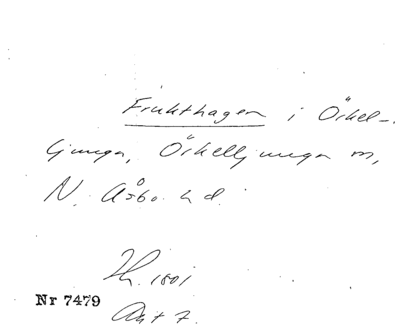 Frukthagen i Örkel-
ljunga, Örkelljunga sn,
N. Åsbo hd.
1801
Nr 7479
Akt 7.